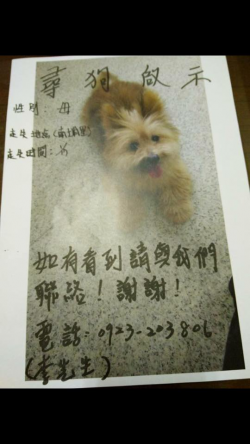 尋狗啟示
性別：母
走失地點(
走失時間：
如有看到請與我們
聯絡！謝謝！
電話：0923-203806
(李先生)